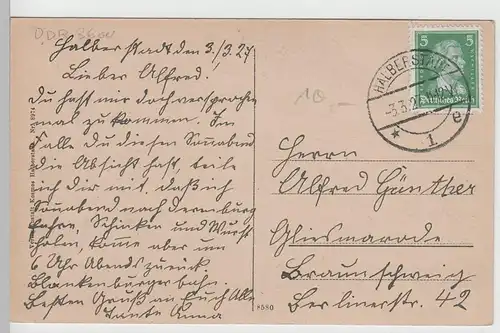 DDR 3600
Halberstadt den 3./3.27
Lieber Alfred!
Du hast mir doch versprochen
mal zu kommen. Im
Falle du diesen Sonabend
die Absicht hast, teile
ich Dir mit, daß ich
Sonabend nach Derenburg
fahre, Schinken und Wurst
holen, komme aber um
6 Uhr Abends zurück
Blankenburgerbahn.
Besten Gruß an Euch Alle
Tante Anna
8580
5 5
Deutsches Reich
HALBERSTADT
-3.3.2
* 1 e
Herrn
Alfred Günther
Gliesmarode
Braunschweig
Berlinerstr. 42